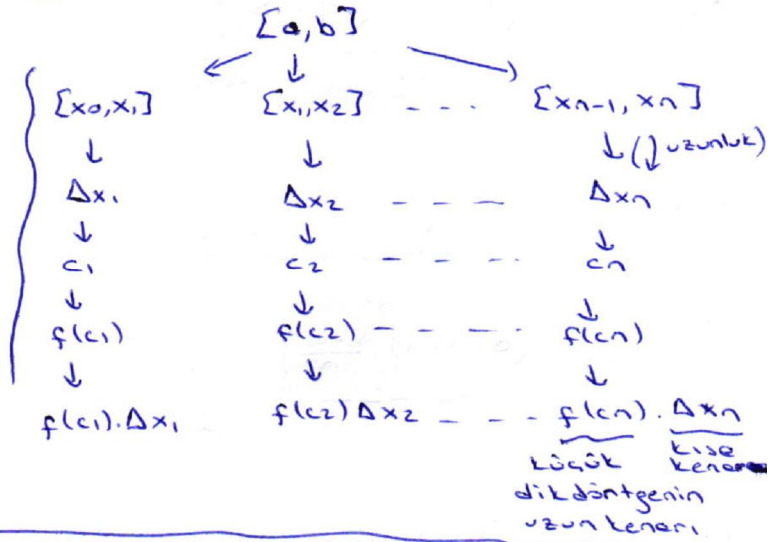 [a,b]
[x₀,x₁] [x₁,x₂] - - - [xn-1, xn]
↓ ↓ ↓ (↓ uzunluk)
Δx₁ Δx₂ - - - Δxn
↓ ↓ ↓
c₁ c₂ - - - - cn
↓ ↓ ↓
f(c₁) f(c₂) - - - - f(cn)
↓ ↓ ↓
f(c₁).Δx₁ f(c₂)Δx₂ - - - f(cn).Δxn
küçük kısa
kenar
dikdörtgenin
uzun kenarı